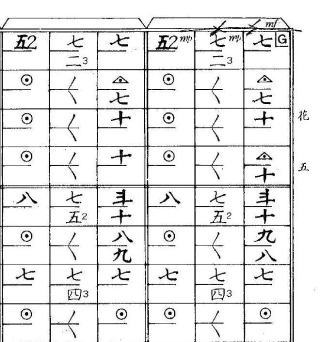 花
五
mf
七 G
七
十
十
斗
十
九
八
七
七
二3
七
五2
七
四3
五2
八
七
七
七
十
十
斗
十
八
九
七
七
二3
七
五2
七
四3
五2
八
七